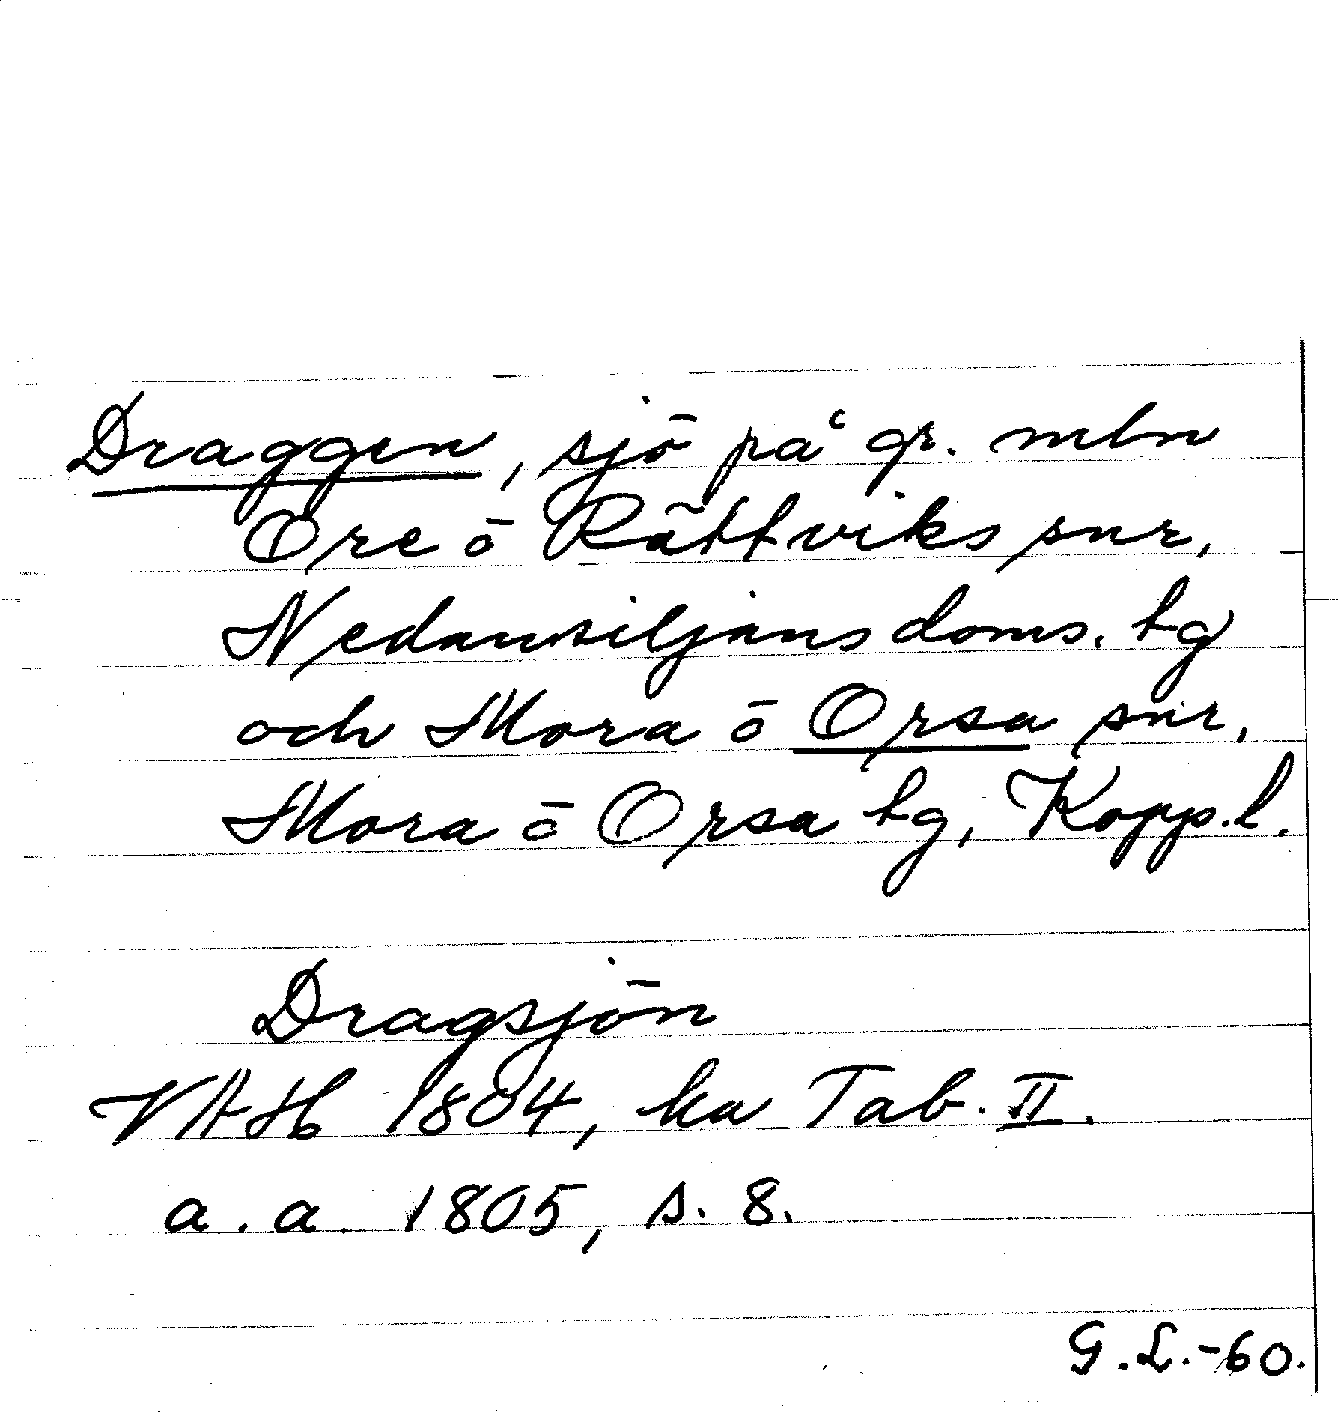 Draggen, sjö på gr. mln
Ore ō Rättviks snr,
Nedansiljans doms. tg
och Mora ō Orsa snr,
Mora ō Orsa tg, Kopp. l.
Dragsjön
VAH 1804, ka Tab. II.
a. a. 1805, s. 8.
G. L. -60.